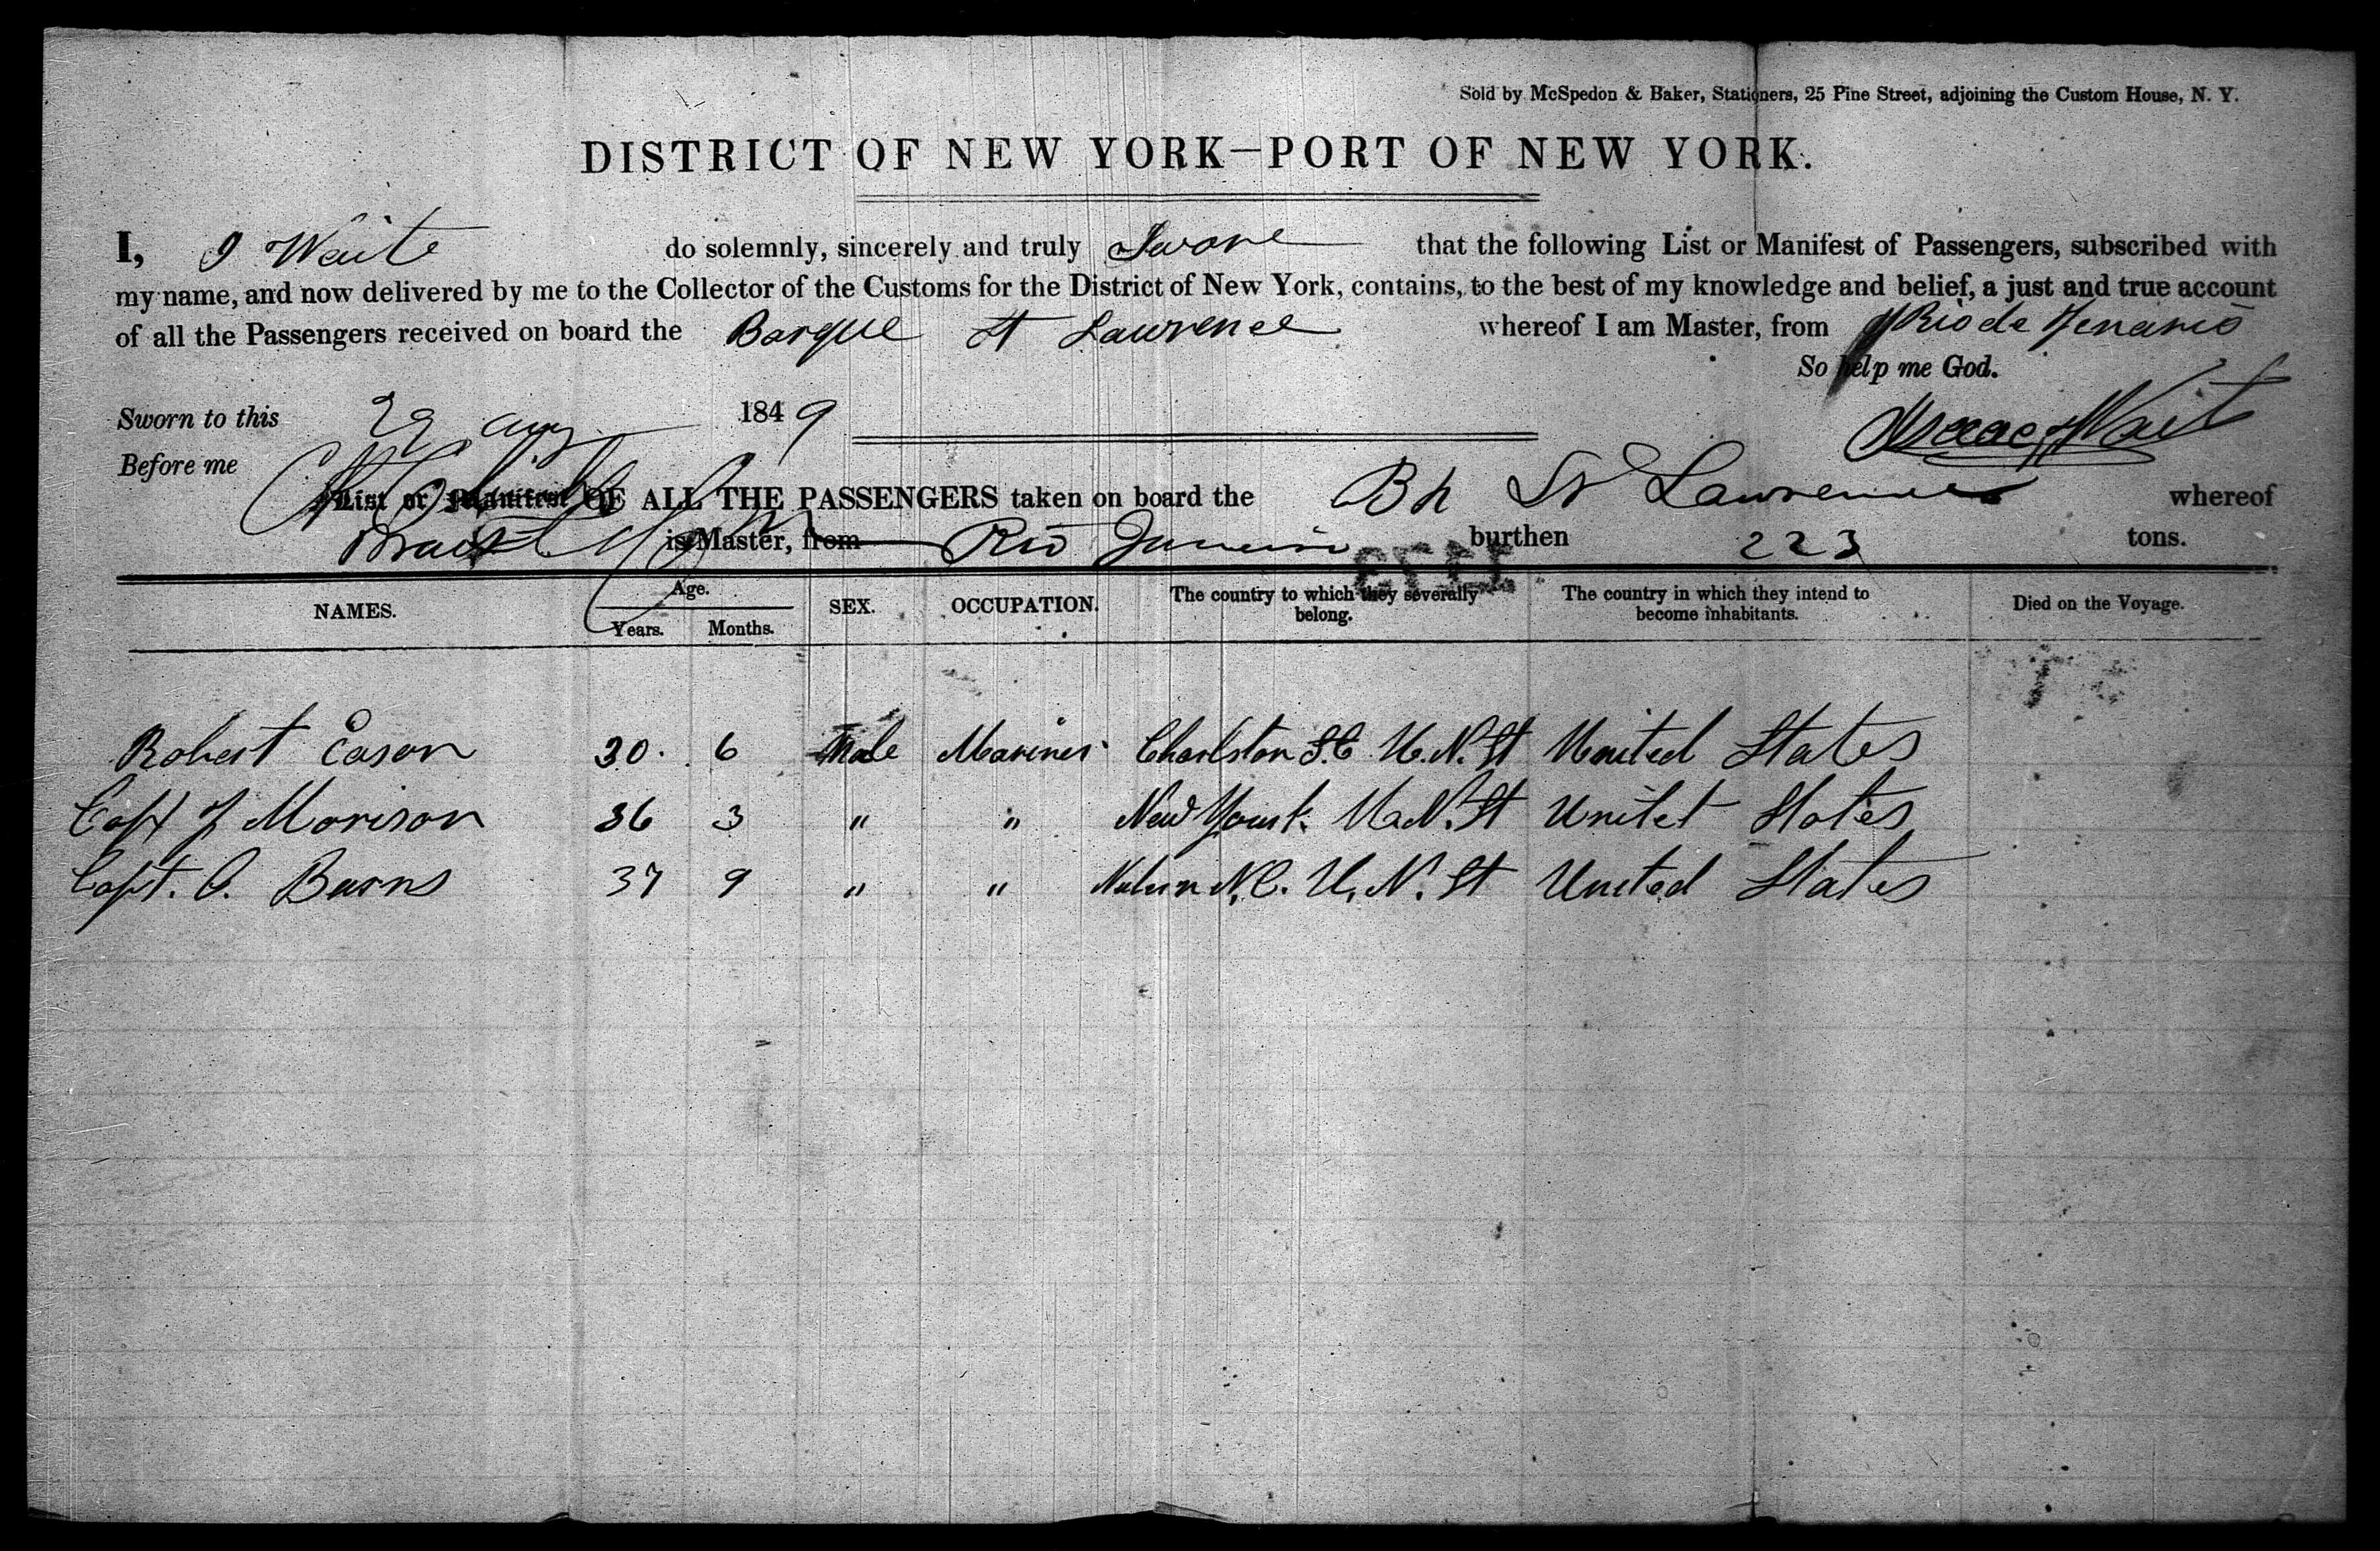 Sold by McSpedon & Baker, Stationers, 25 Pine Street, adjoining the Custom House, N. Y.
DISTRICT OF NEW YORK—PORT OF NEW YORK.
I, I Waite do solemnly, sincerely and truly Swore that the following List or Manifest of Passengers, subscribed with
my name, and now delivered by me to the Collector of the Customs for the District of New York, contains, to the best of my knowledge and belief, a just and true account
of all the Passengers received on board the Barque St Lawrence whereof I am Master, from Rio de Jenario
So help me God.
Sworn to this 29 Aug 1849
Isaac Wait
Before me
List or Manifest OF ALL THE PASSENGERS taken on board the Bk St Lawrence whereof
is Master, from Rio Janeiro burthen 223 tons.
NAMES. Age. Years. Months. SEX. OCCUPATION. The country to which they severally belong. The country in which they intend to become inhabitants. Died on the Voyage.
Robert Eason 30. 6 Male Mariner Charlston S.C U.N. St United States
Capt J Morison 36 3 " " New Yourk. U.N. St Unitet States
Capt. O. Burns 37 9 " " N.C. U.N. St United States